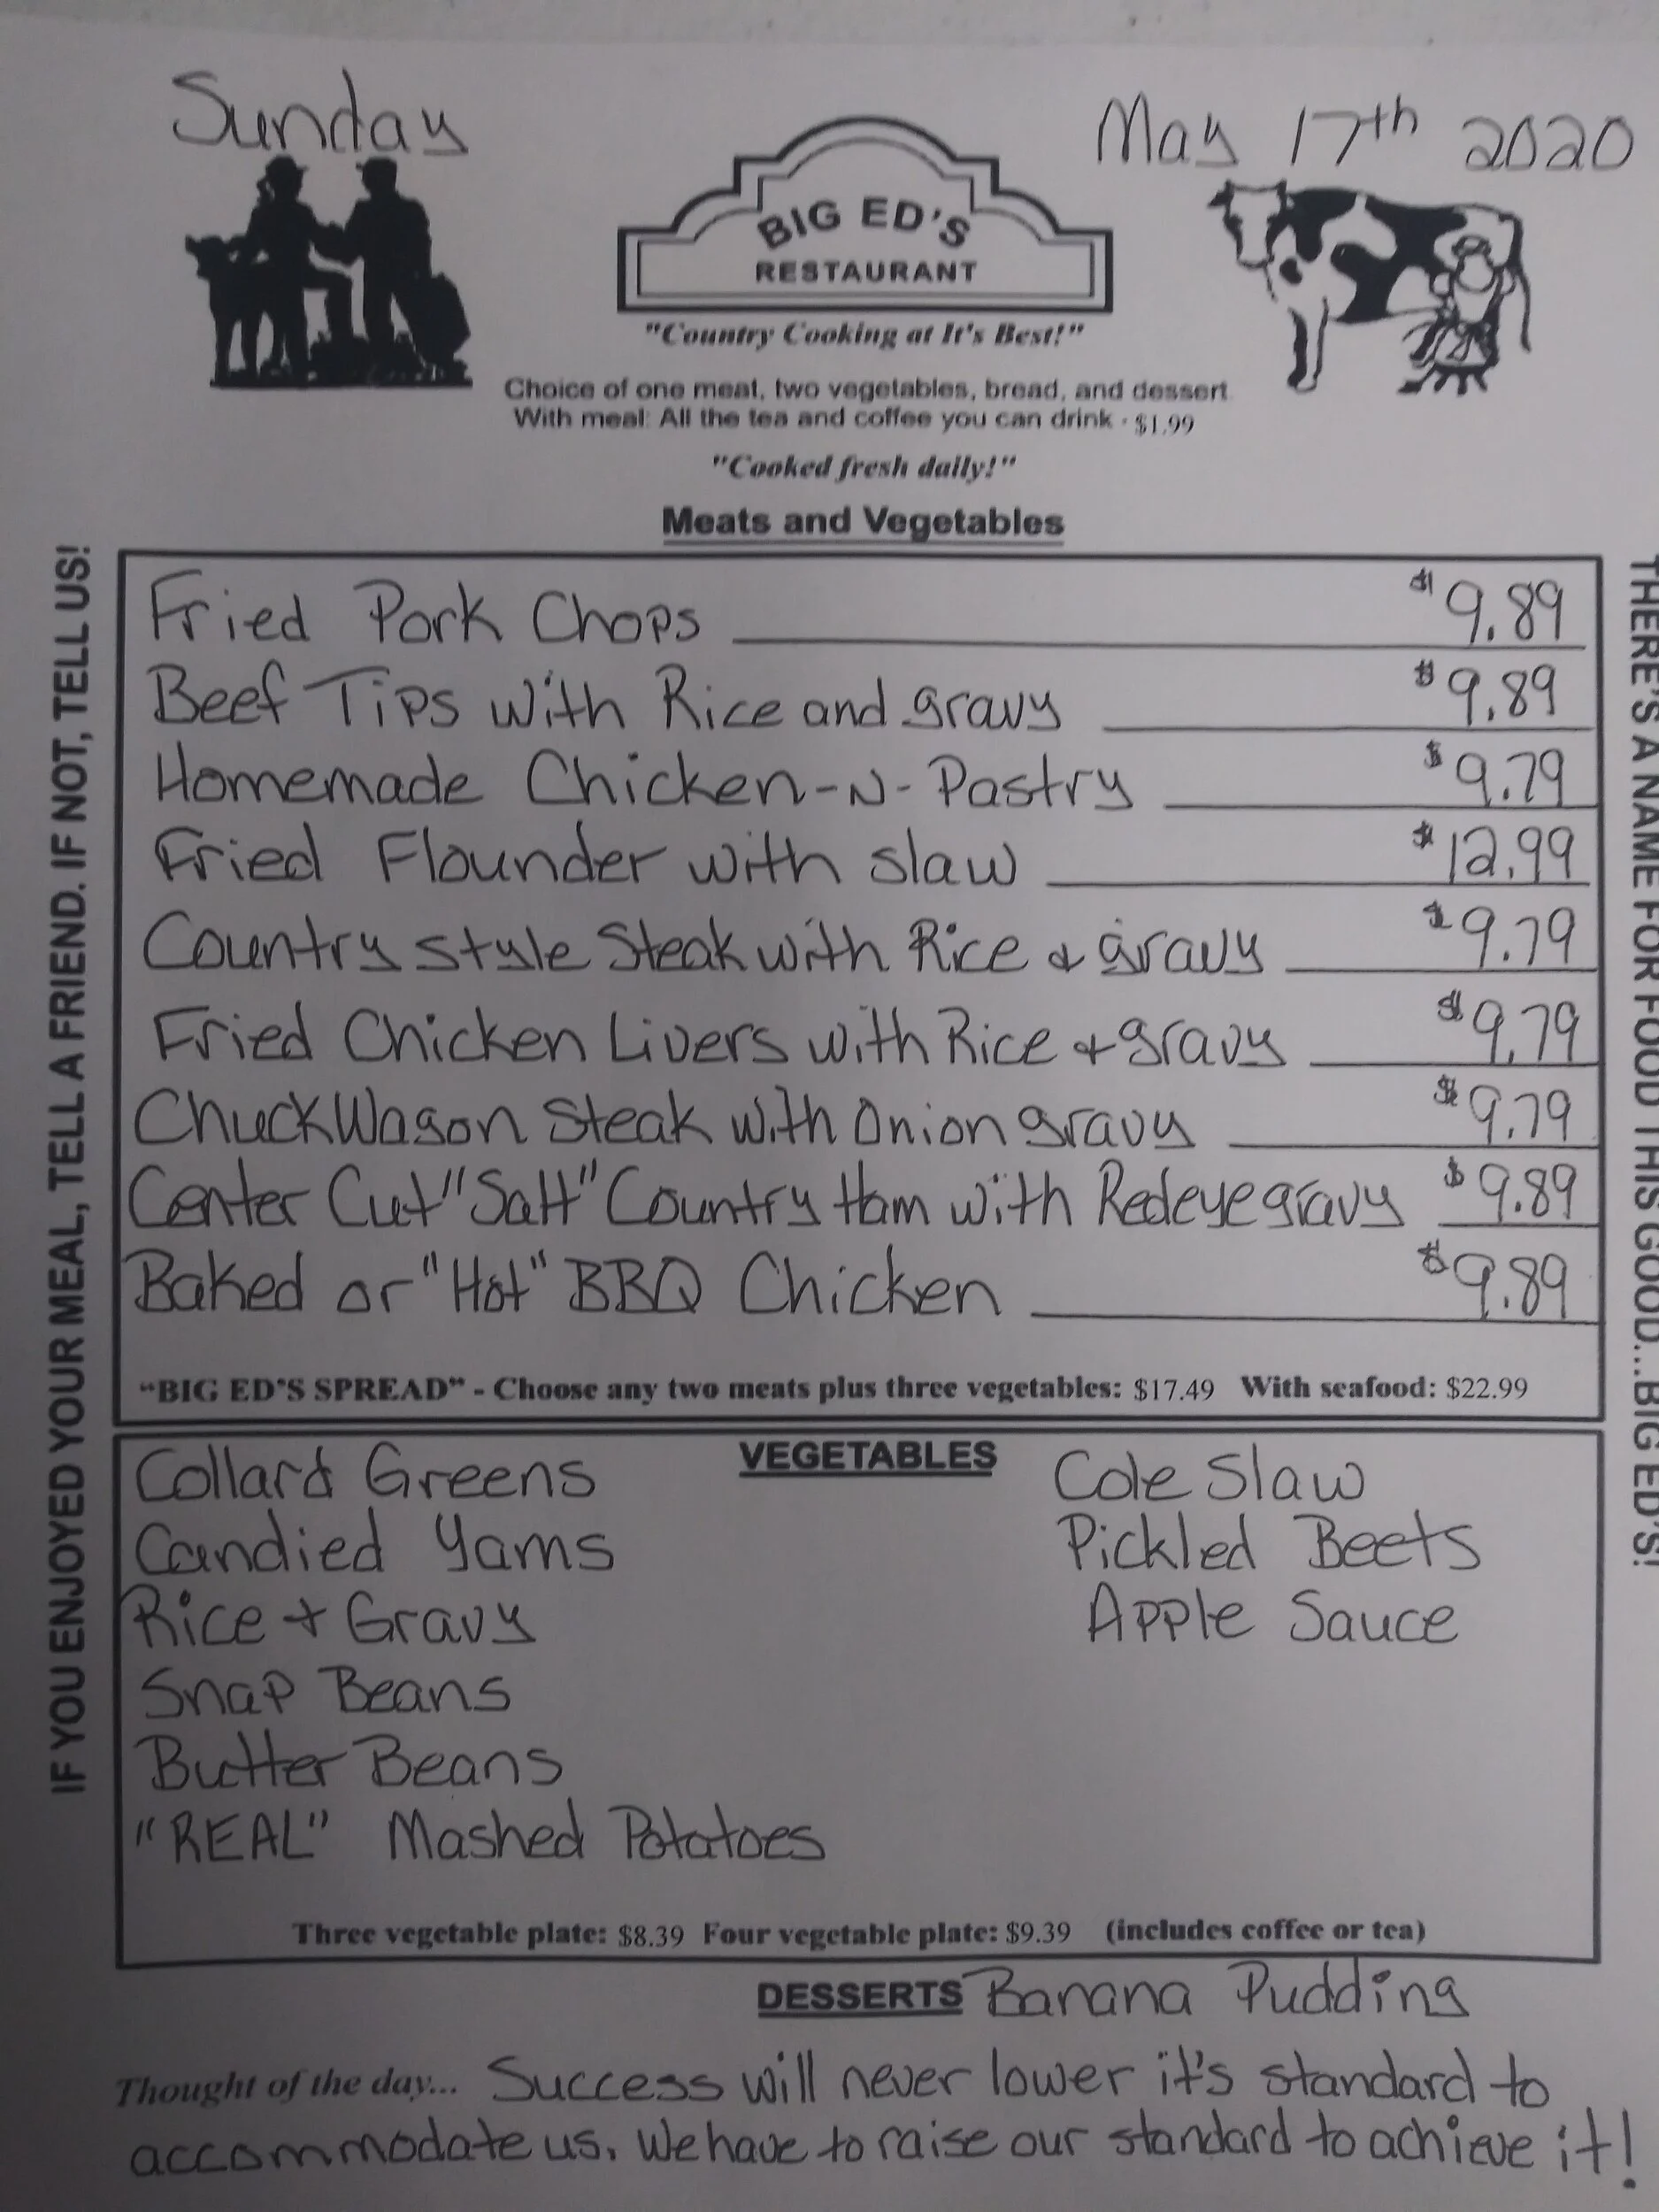 Sunday
May 17th 2020
BIG ED'S
RESTAURANT
"Country Cooking at It's Best!"
Choice of one meat, two vegetables, bread, and dessert.
With meal: All the tea and coffee you can drink - $1.99
"Cooked fresh daily!"
Meats and Vegetables
Fried Pork Chops $9.89
Beef Tips with Rice and gravy $9.89
Homemade Chicken-N-Pastry $9.79
Fried Flounder with slaw $12.99
Country style Steak with Rice & gravy $9.79
Fried Chicken Livers with Rice + gravy $9.79
ChuckWagon Steak with Onion gravy $9.79
Center Cut "Salt" Country Ham with Redeye gravy $9.89
Baked or "Hot" BBQ Chicken $9.89
"BIG ED'S SPREAD" - Choose any two meats plus three vegetables: $17.49 With seafood: $22.99
VEGETABLES
Collard Greens
Candied Yams
Rice + Gravy
Snap Beans
Butter Beans
"REAL" Mashed Potatoes
Cole Slaw
Pickled Beets
Apple Sauce
Three vegetable plate: $8.39 Four vegetable plate: $9.39 (includes coffee or tea)
DESSERTS Banana Pudding
Thought of the day... Success will never lower it's standard to
accommodate us. We have to raise our standard to achieve it!
IF YOU ENJOYED YOUR MEAL, TELL A FRIEND. IF NOT, TELL US!
THERE'S A NAME FOR FOOD THIS GOOD...BIG ED'S!